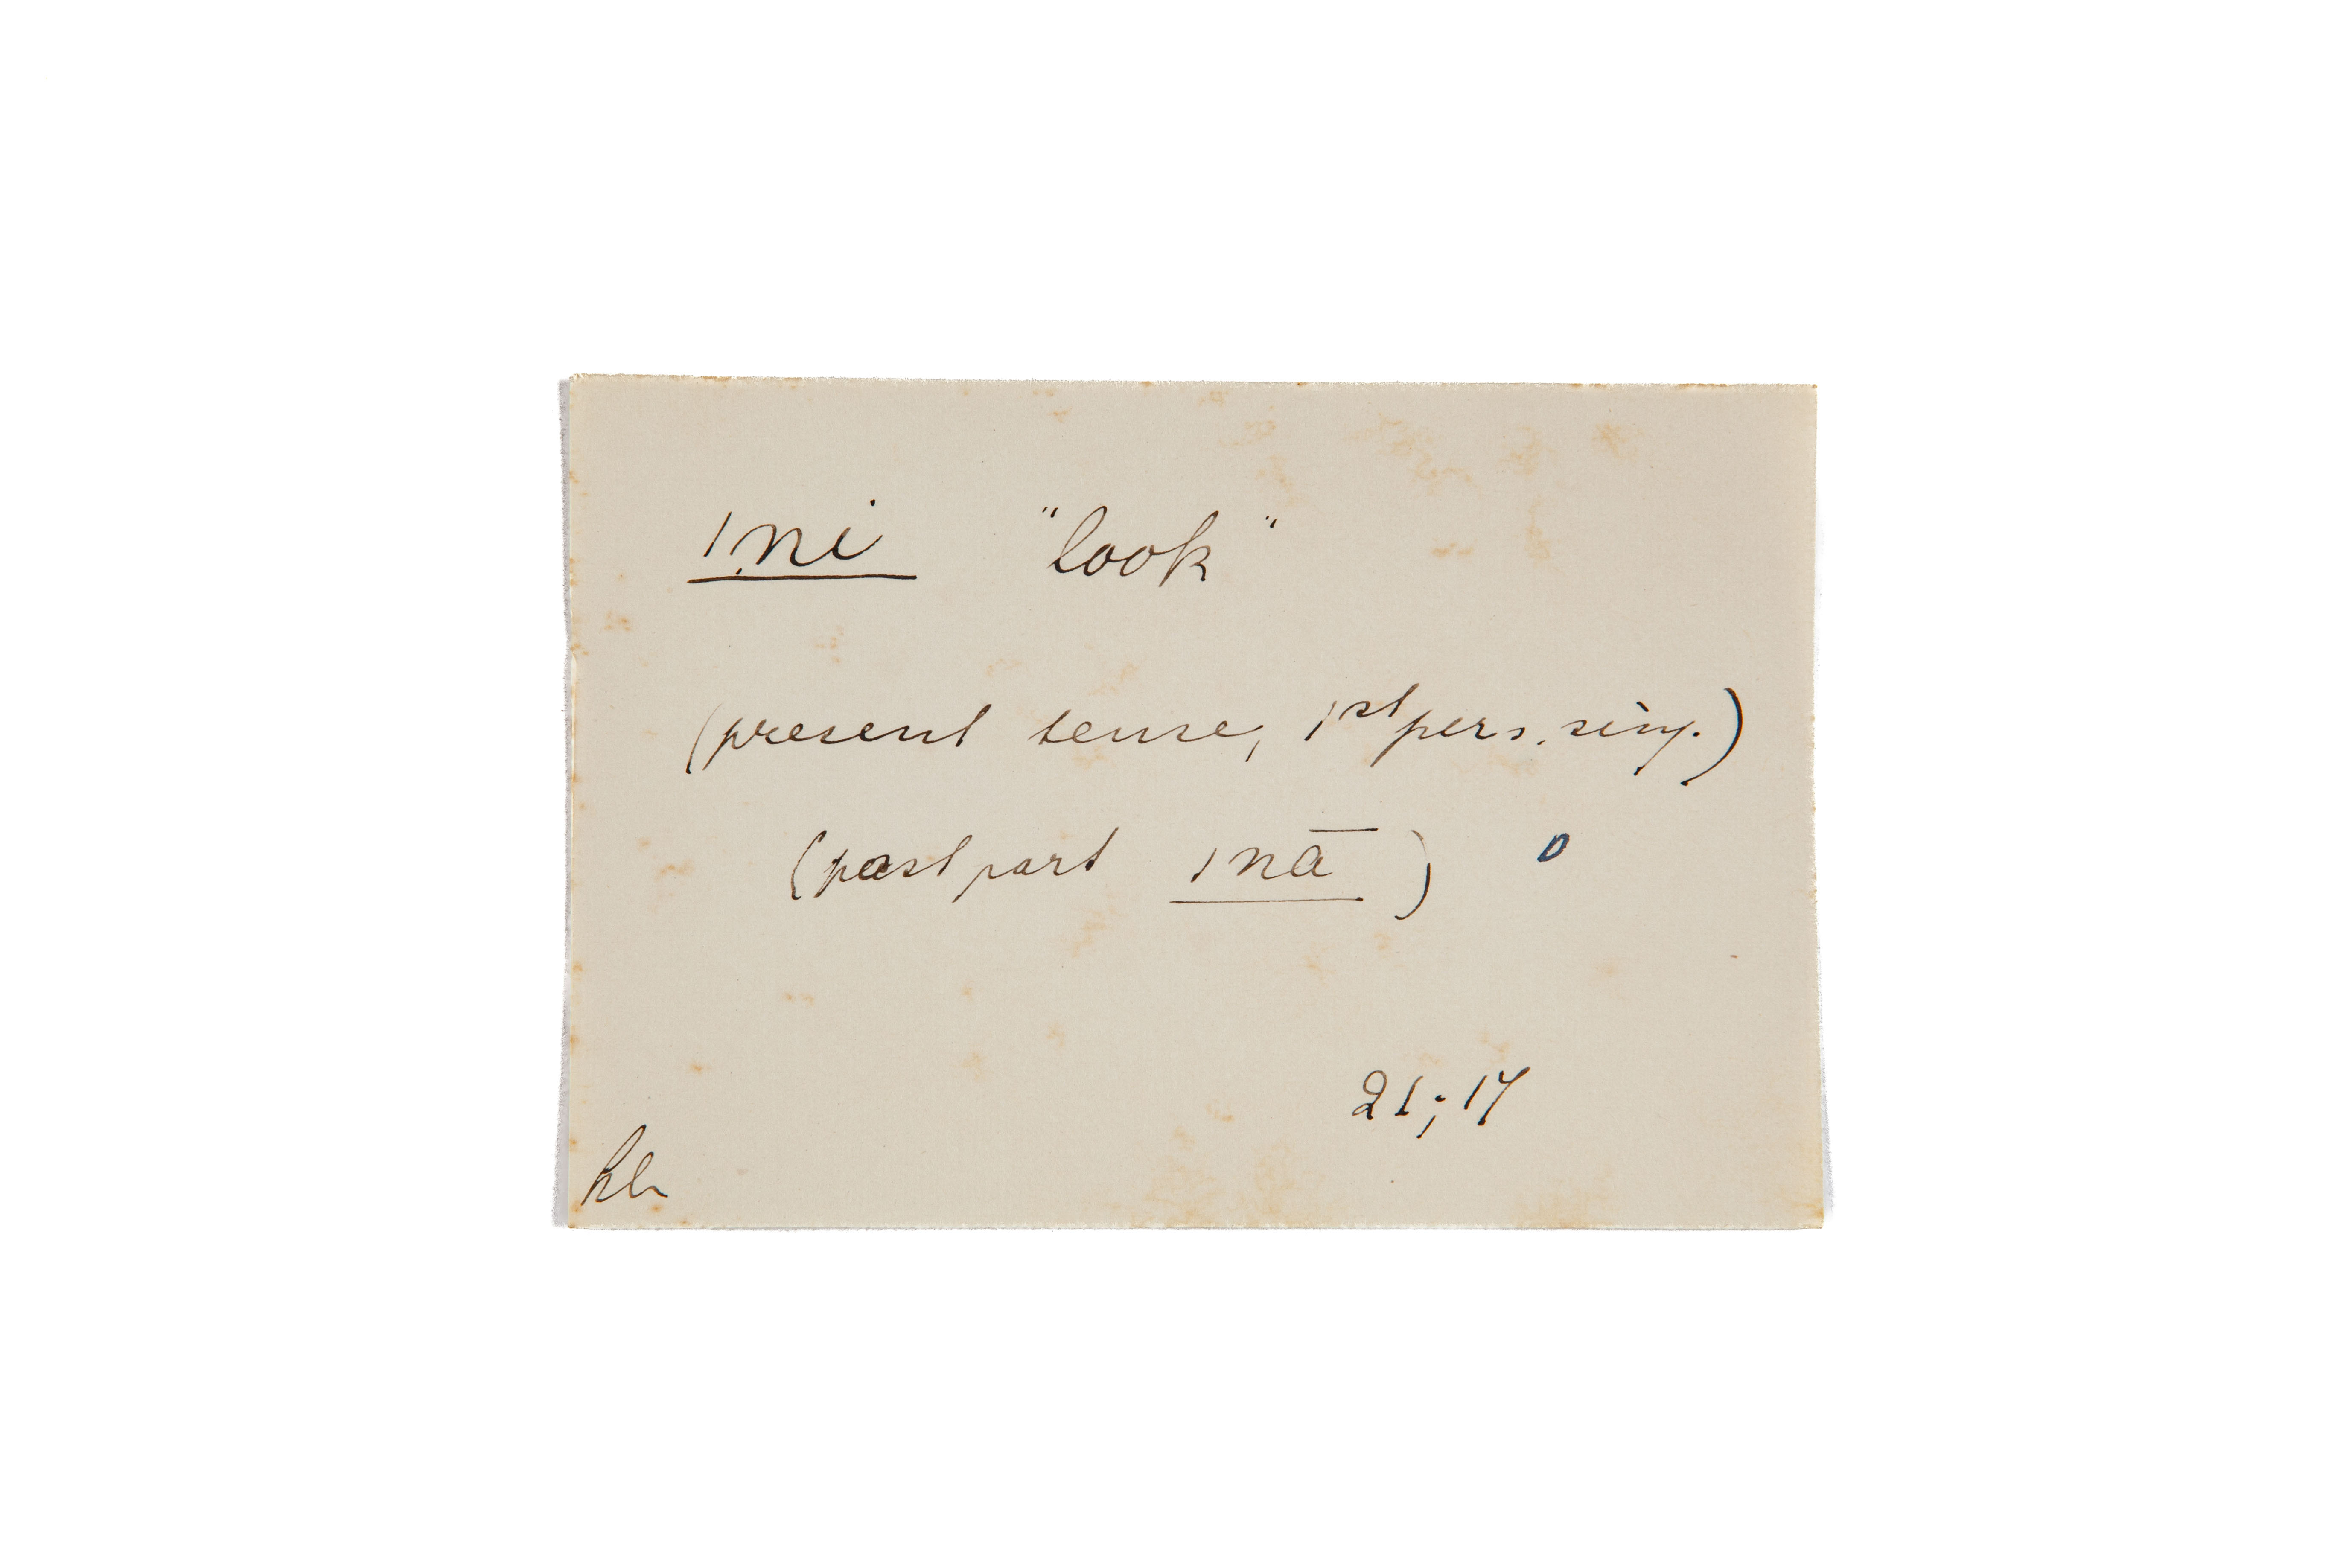 ini "look"
(present tense, 1st pers. sing.)
(past part inā)
21; 17